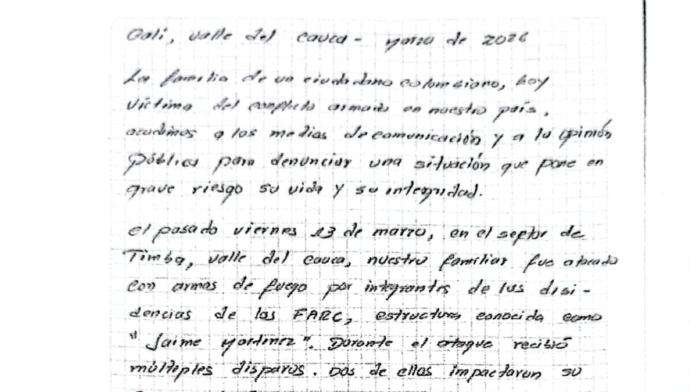 Cali, valle del cauca - marzo de 2026
La familia de un ciudadano colombiano, hoy
víctima del conflicto armado en nuestro país,
acudimos a los medios de comunicación y a la opinión
Pública para denunciar una situación que pone en
grave riesgo su vida y su integridad.
el pasado viernes 13 de marzo, en el septor de
Timba, valle del cauca, nuestro familiar fue atacado
con armas de fuego por integrantes de las disi-
dencias de las FARC, estructura conocida como
"Jaime Martinez". Durante el ataque recibió
múltiples disparos. Dos de ellos impactaron su